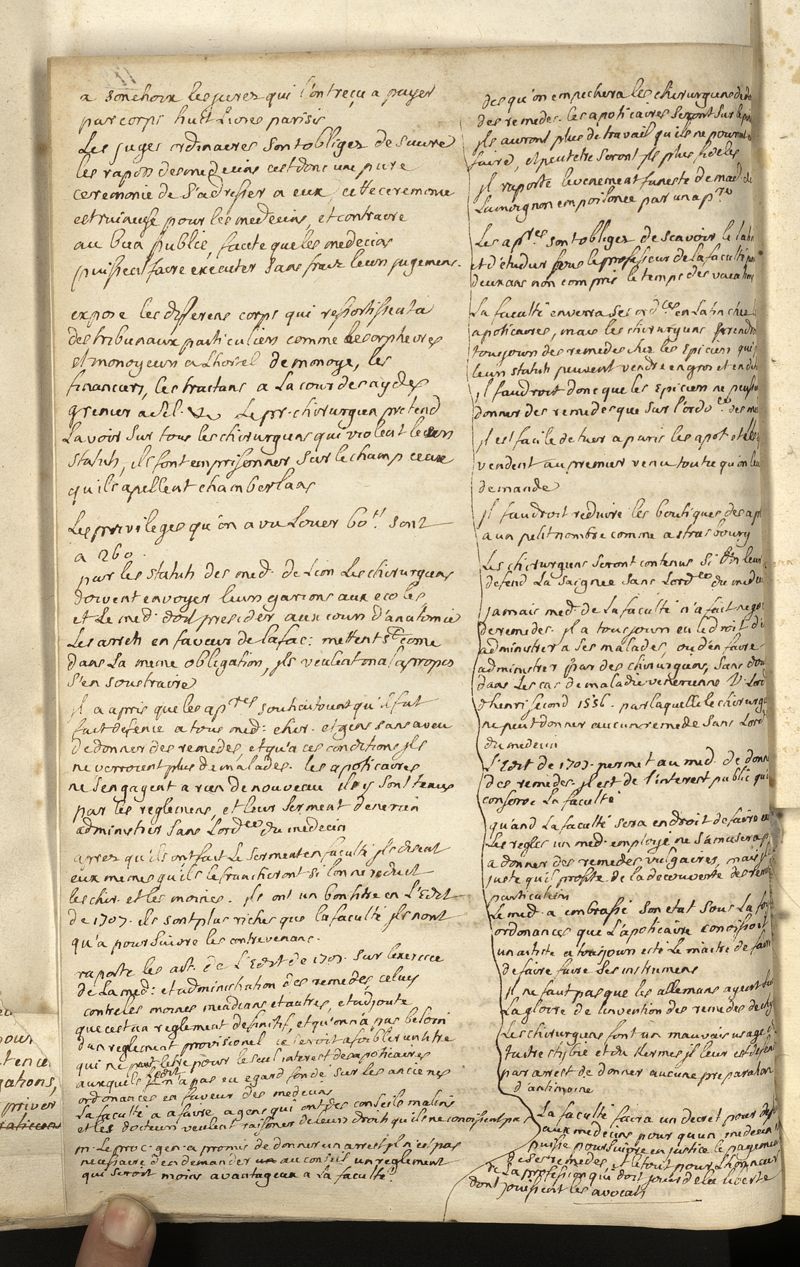 a son choix les jurez qui l'ont reçu a payer
par corps huit Livres parisis
Les juges ordinaires sont obligez de suivre
les rapors des medecins cest donc une pure
ceremonie de s'adresser a eux, cette ceremonie
est ruineuse pour les medecins, et contraire
au bien public, faute que les medecins
puissent faire executer sans fraiz leurs jugemens.
expose les differens corps qui ressortissent a
des tribunaux particuliers comme les orphevres
et monoyeurs a L'hostel de monoye, les
financiers, les traitans a La cour des aydes
grenier a sel. Le pr. chirurgien pretend
L'avoir sur tous les chirurgiens qui violent leurs
statuts, ils font emprisonner sur le champ ceux
qu'ils apellent chamberlans
Les privileges qu'on a vu Louer 60tt sont
a 260.
par les statuts des med. de Lion Les chirurgiens
doivent envoyer leurs garcons aux ecoles
et Le med. doit presider aux cours d'anatomie
Les arrets en faveur de la fac: mettent St Come
dans La meme obligation, ils veulent mal a propos
s'en soustraire
il a apris que les apres souhaitoient qu'il fut
fait defense a tous med: chir. et gens sans aveu
de donner des remedes, et qu'a ces conditions ils
ne verroient plus de malades. Les apoticaires
ne s'engagent a rien de nouveau ils y sont tenus
par les reglemens, et leur serment de ne rien
administrer sans L'ordce du medecin
apres qu'ils ont fait Le serment en faculté ils disent
eux memes qu'ils le franchiront si l'on ne reduit
les chir. et les moines. ils ont un bon titre en L'Edit
de 1707. ils sont plus riches que la faculté ils n'ont
qu'a poursuivre les contrevenans.
raporte les art. de L'Edit de 1707. sur l'exercice
de La med: et administration des remedes, celui
contre les moines mendians et autres, et adjoute
que cest un reglement definitif, et qu'on n'a pas besoin
d'un reglement provisionel ce seroit afoiblir un titre
qui ne peut etre pour le seul interest des apoticaires
auxquels l'edit n'a pas eu egard fondé sur les anciennes
ordonances en faveur des medecins
La faculté a afaire a gens qui ont des conseils malins
et les docteurs veulent raisoner de leurs droits qu'ils ne conoissent pas
m. Le proc. gen. a promis de donner un arrest il n'est pas
necessaire d'en demander au conseil un reglement
qui seroit moins avantageux a La faculté.
des qu'on empechera les chirurgiens de
des remedes. les apoticaires seront sur
ils auront plus de travail qu'ils ne pourront
faire, et peut etre seront ils plus fideles
il raporte l'evenement funeste de mad. de
Lamoignon empoisonée par un apre
Les apres sont obligez de scavoir le latin
et d'etudier sous le professeur de la faculté
deux ans non compris le temps des vacations
La faculté envera ses ordces en Latin chez
apoticaires, mais les chirurgiens prendront
toujours des remedes chez les epiciers qui
leurs statuts peuvent vendre en gros et en
il faudroit donc que les epiciers ne pussent
donner des remedes que sur l'ordce des med
il est facile de tuer a paris les apot. et
vendent au premier venu toute qu'on leur
demande
il faudroit reduire les boutiques des ap
a un petit nombre comme a strasbourg
Les chirurgiens seront contenus si on leur
defend La saignée sans L'ordce du medecin
jamais med. de La faculté n'a fait negoce
de remedes. il a toujours eu le droit d'en
administrer a ses malades, ou d'en faire
administrer par des chirurgiens, sans
dans Les cas de maladie venerienne V. L'ord
d'henri second 1556. par laquelle le chirurgien
ne peut donner aucun remede sans L'ord
du medecin
L'Edit de 1707. permet au med. de donner
des remedes. il est de l'interest public qu'on
conserve La faculté
quand La faculté sera en droit de faire
Les regles un med. employé ne s'amusera pas
a donner des remedes vulgaires, mais il
juste qu'il profite de la decouverte de
particuliers
Le med. a embrassé son etat sous La foy
ordonances que L'apoticaire conoissoit
un artiste a toujours esté Le maitre de
de faire faire ses instrumens
il ne faut pas que les allemans ayent
La gloire de l'invention des remedes
Les chirurgiens font un mauvais usage
tartre stibié et du kermes il leur est defendu
par arrest de donner aucune preparation
d'antimoine
La faculté faira un decret pour
aux medecins pour qu'un medecin
puisse poursuivre en justice le payement
de ses remedes et le tout pour L'honneur
de La profession qui doit jouir de la liberté
dont jouissent les avocats